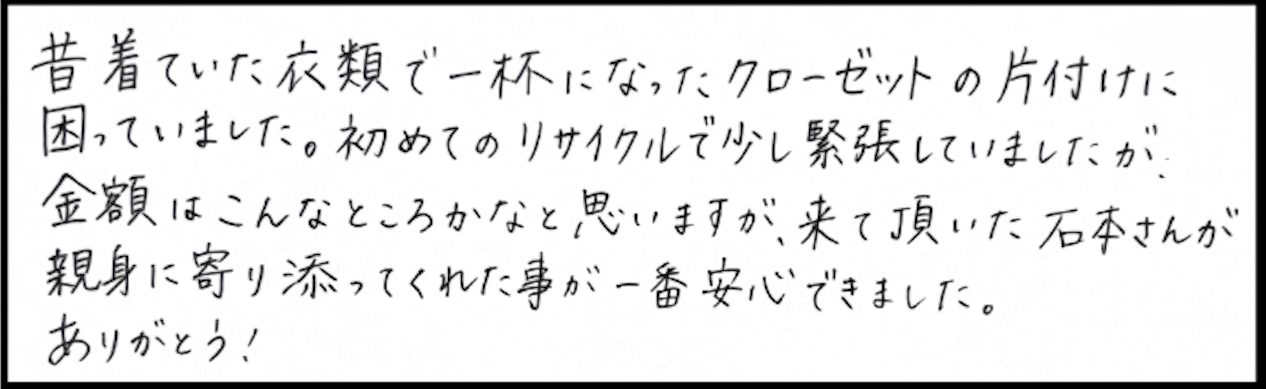 昔着ていた衣類で一杯になったクローゼットの片付けに
困っていました。初めてのリサイクルで少し緊張していましたが、
金額はこんなところかなと思いますが、来て頂いた石本さんが
親身に寄り添ってくれた事が一番安心できました。
ありがとう!